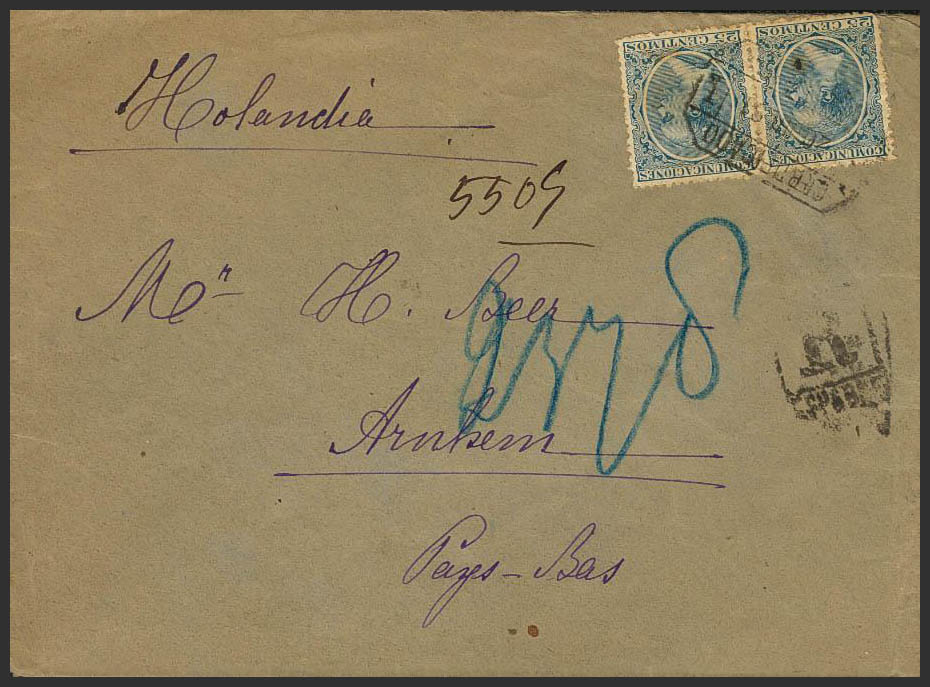 25 CENTIMOS
25 CENTIMOS
COMUNICACIONES
COMUNICACIONES
Holandia
5509
Mr H. Beer
Arnhem
Pays-Bas